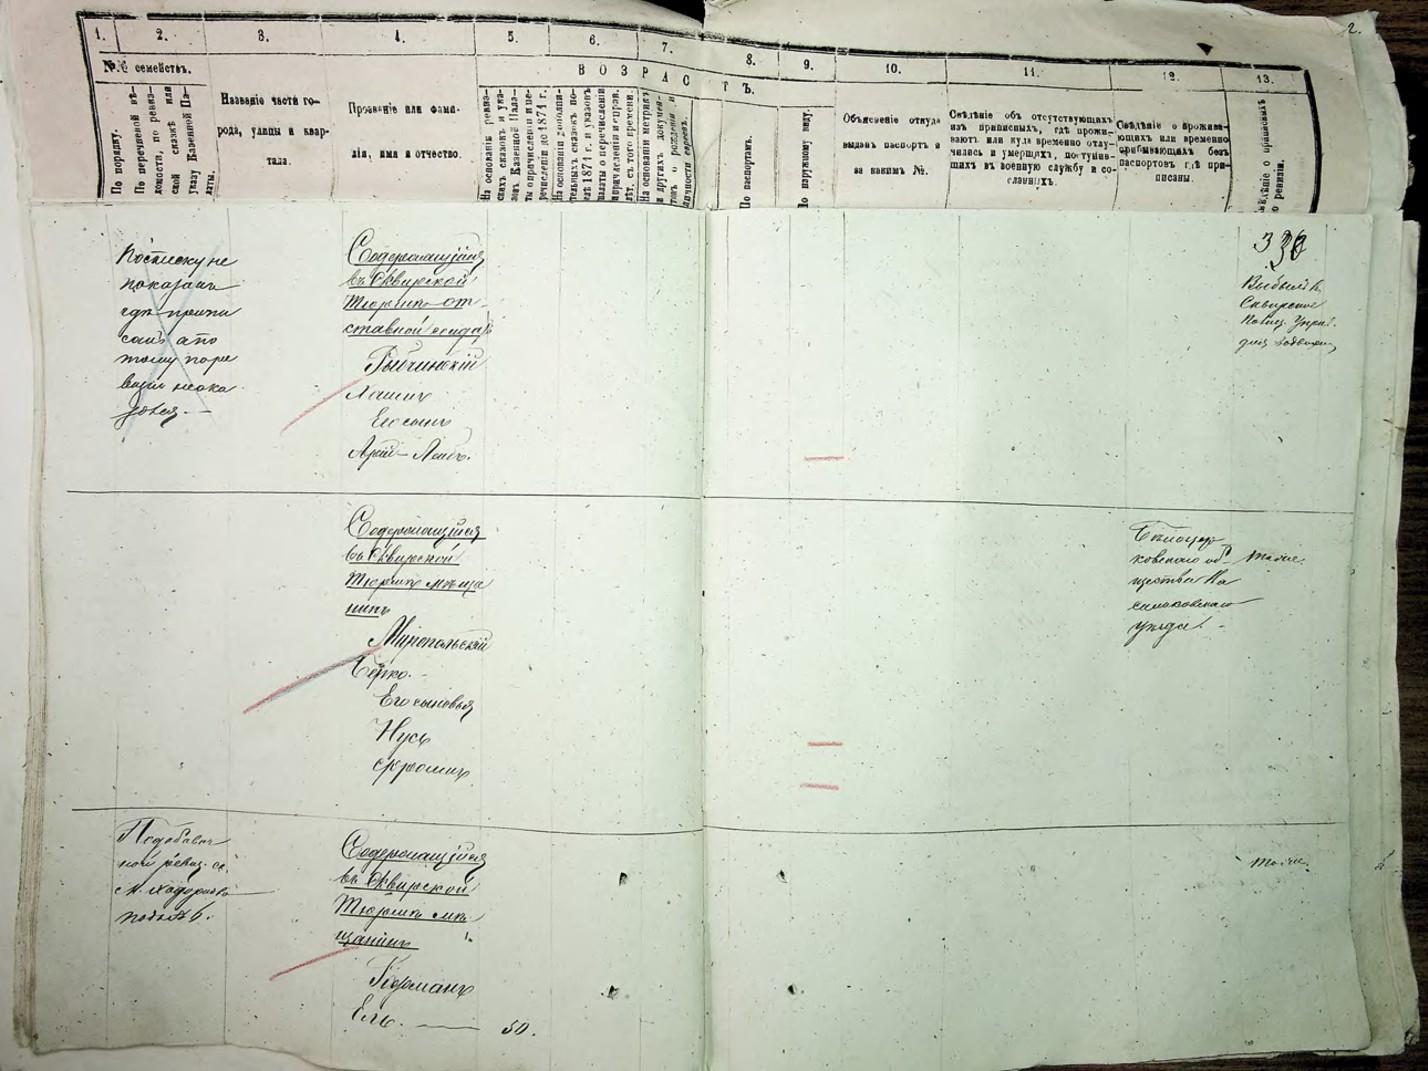 2.
1. 2. 3. 4. 5. 6. 7. 8. 9. 10. 11. 12. 13.
№№ семействъ.
ВОЗРАСТЪ.
По порядку.
По перечневой вѣ-
домости, по ревиз-
ской сказкѣ или
указу Казенной Па-
латы.
Названіе части го-
рода, улицы и квар-
тала.
Прозваніе или фами-
лія, имя и отчество.
На основаніи ревиз-
скихъ сказокъ и ука-
зовъ Казенной Пала-
ты о причисленіи и пе-
речисленіи до 1871 г.
На основаніи дополни-
тельныхъ сказокъ по-
слѣ 1871 г. и указовъ
палаты о перечисленіи
и причисленіи
съ того времени.
На основаніи метрик.
и другихъ докумен-
товъ о рожденіи и
личности евреевъ.
По паспортамъ.
По наружному виду.
Объясненіе откуда
выданъ паспортъ и
за какимъ №.
Свѣдѣніе объ отсутствующихъ
изъ приписныхъ, гдѣ прожи-
ваютъ или куда временно отлу-
чились и умершихъ, поступив-
шихъ въ военную службу и со-
сланныхъ.
Свѣдѣніе о прожива-
ющихъ или временно
прибывающихъ безъ
паспортовъ гдѣ при-
писаны.
Свѣдѣніе о
ревизіи.
По списку не
показанъ
гдѣ припи
санъ а по
тому по ре
визіи не ока
зался. —
Содержащійся
въ Сквирской
Тюрьмѣ от
ставной солдатъ
Рыбчинскій
Его сынъ
Арій-Лейбъ.
Выбылъ въ
Сквирское
Полиц. Управ.
для
Содержащійся
въ Сквирской
Тюрьмѣ мѣща
нинъ
Миропольскій
Берко.
Его сыновья
Нусь
Фроимъ
Бѣлоцер
ковскаго об
щества Ва
сильковскаго
уѣзда. -
тоже.
По добавоч
ной ревиз. ск.
м. Ходорково
подъ № 6.
Содержащійся
въ Сквирской
Тюрьмѣ мѣ
щанинъ
Германъ
Ель. — 50.
тоже.